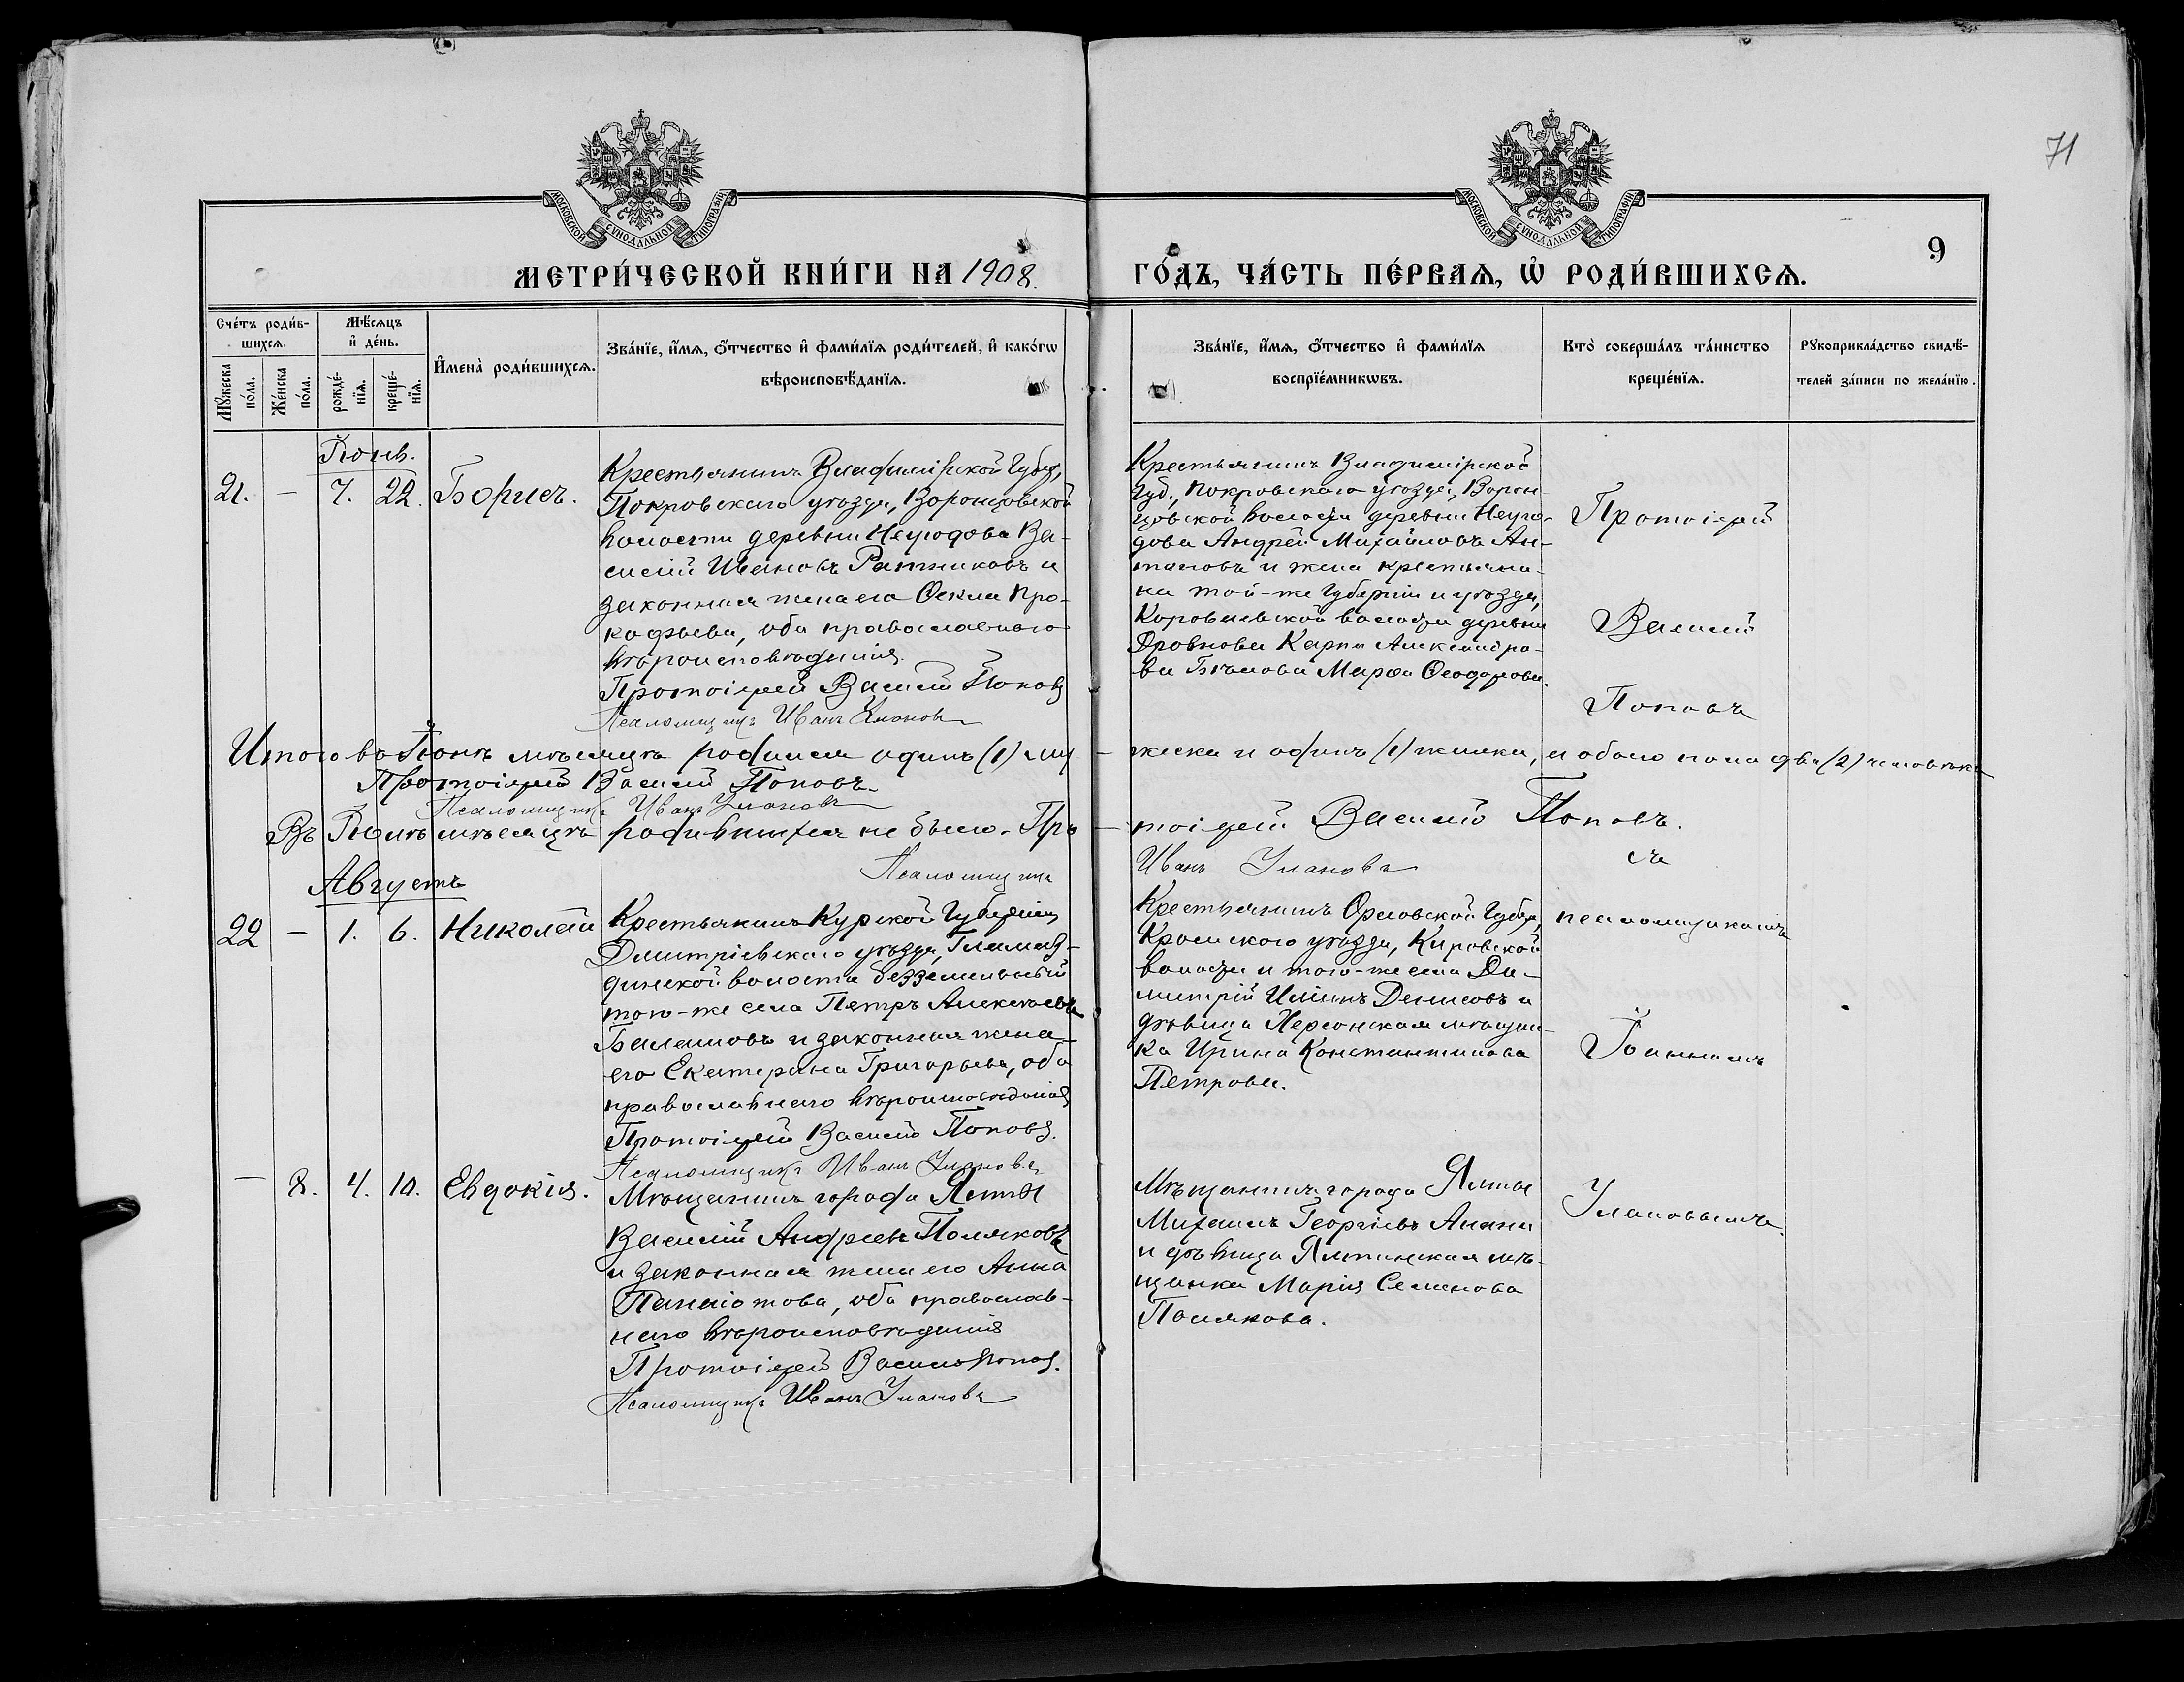 71
МОСКОВСКОЙ СУНОДАЛЬНОЙ ТИПОГРАФІИ
МОСКОВСКОЙ СУНОДАЛЬНОЙ ТИПОГРАФІИ
9
МЕТРИ́ЧЕСКОЙ КНИ́ГИ НА 1908.
ГО́ДЪ, ЧА́СТЬ ПЕ́РВАѦ, Ѡ РОДИ́ВШИХСѦ.
Сче́тъ роди́в-
шихсѧ.
Мꙋжеска по́ла.
Же́нска по́ла.
Мѣ́сѧцъ
и҆ де́нь.
рожде́-
нїѧ.
креще́-
нїѧ.
И҆мена̀ роди́вшихсѧ.
Зва́нїе, и҆́мѧ, ѻ҆́тчество и҆ фами́лїѧ роди́телей, и҆ како́гѡ
вѣроисповѣ́данїѧ.
Зва́нїе, и҆́мѧ, ѻ҆́тчество и҆ фами́лїѧ
воспрїе́мникѡвъ.
Кто̀ соверша́лъ та́инство
креще́нїѧ.
Рꙋкоприкла́дство свидѣ́-
телей за́писи по жела́нїю.
Іюнь.
21. — 7. 22. Борисъ.
Крестьянинъ Владимірской Губер,
Покровскаго уѣзда, Воронцовской
волости деревни Неугодова Ва-
силій Ивановъ Ратниковъ и
законная жена его Ѳекла Про-
кофьева, оба православнаго
вѣроисповѣданія.
Протоіерей Василій Поповъ
Псаломщикъ Иванъ Улановъ
Крестьянинъ Владимірской
Губ., Покровскаго уѣзда, Ворон-
цовской волости деревни Неуго-
дова Андрей Михайловъ Ан-
типовъ и жена крестьяни-
на той-же Губерніи и уѣзда,
Коробовской волости деревни
Дровнова Карпа Александро-
ва Бѣлова Марѳа Ѳеодорова.
Протоіерей
Василій
Поповъ
Итого въ Іюнѣ мѣсяцѣ родился одинъ (1) му- жеска и одинъ (1) женска, и обоего пола два (2) человѣка
Протоіерей Василій Поповъ.
Псаломщикъ Иванъ Улановъ
Въ Іюлѣ мѣсяцѣ родившихся не было. Про- тоіерей Василій Поповъ.
Псаломщикъ Иванъ Улановъ
съ
Августъ
22 — 1. 6. Николай
Крестьянинъ Курской Губерніи
Дмитріевскаго уѣзда,
динской волости безземельный
того-же села Петръ Алексѣевъ
Балашовъ и законная жена
его Екатерина Григорьева, оба
православнаго вѣроисповѣданія
Протоіерей Василій Поповъ.
Псаломщикъ Иванъ Улановъ
Крестьянинъ Орловской Губер,
Кромского уѣзда, Кировской
волости и того-же села Ди-
митрій Ильинъ Денисовъ и
дѣвица Херсонская мѣщан-
ка Ирина Константинова
Петрова.
псаломщикомъ
Іоанномъ
— 8. 4. 10. Евдокія.
Мѣщанинъ города Ялты
Василій Андреевъ Поляковъ
и законная жена его Анна
Панаіотова, оба православ-
наго вѣроисповѣданія
Протоіерей Василій Попов.
Псаломщикъ Иванъ Улановъ
Мѣщанинъ города Ялты
Михаилъ Георгіевъ
и дѣвица Ялтинская мѣ-
щанка Марія Семенова
Полякова.
Улановымъ.